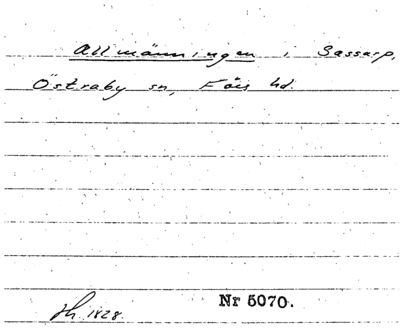 Allmänningen i Sassarp,
Östraby sn, Färs hd.
Nr 5070.
1828.